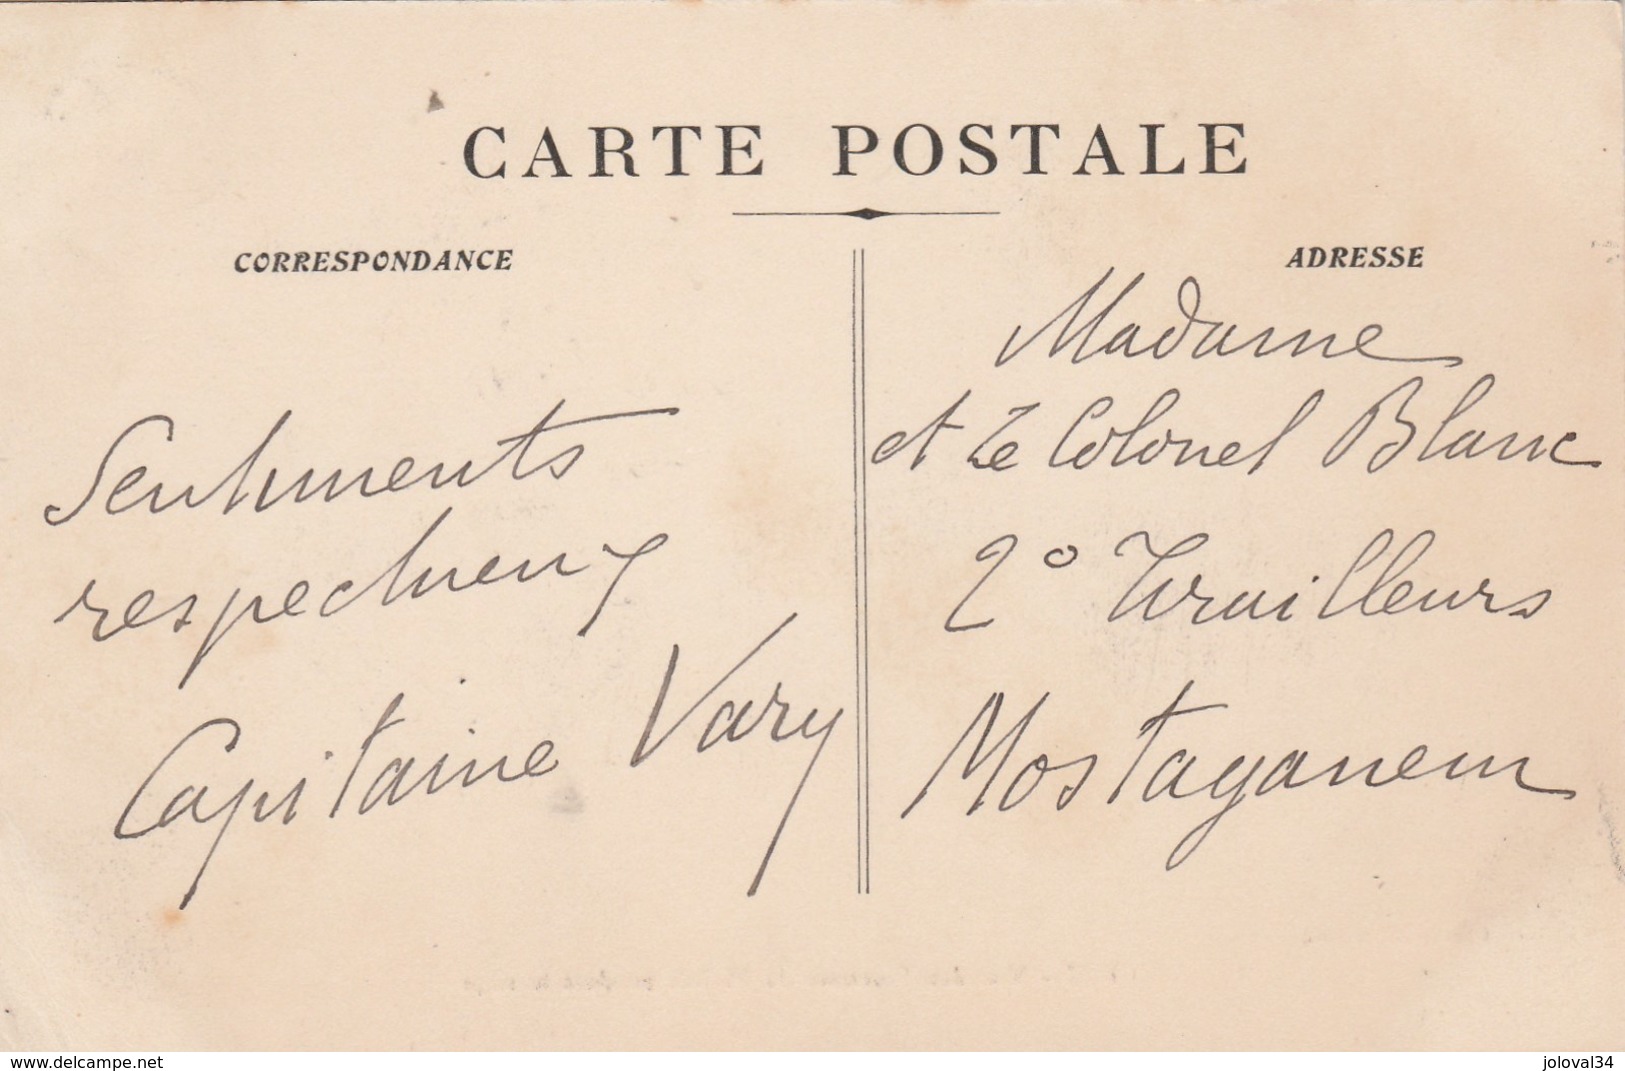 CARTE POSTALE
CORRESPONDANCE
Sentiments
respectueux
Capitaine Vary
ADRESSE
Madame
et Le Colonel Blanc
2° Tirailleurs
Mostaganem
www.delcampe.net
joloval34